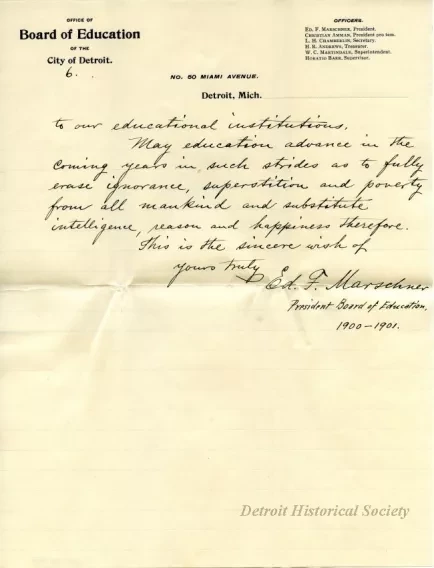 OFFICE OF
Board of Education
OF THE
City of Detroit.
6.
OFFICERS.
ED. F. MARSCHNER, President.
CHRISTIAN AMMAN, President pro tem.
L. H. CHAMBERLIN, Secretary.
H. K. ANDREWS, Treasurer.
W. C. MARTINDALE, Superintendent.
HORATIO BARR, Supervisor.
NO. 50 MIAMI AVENUE.
Detroit, Mich.
to our educational institutions.
May education advance in the
coming years in such strides as to fully
erase ignorance, superstition and poverty
from all mankind and substitute
intelligence, reason and happiness therefore.
This is the sincere wish of
yours truly
Ed. F. Marschner
President Board of Education.
1900-1901.
Detroit Historical Society